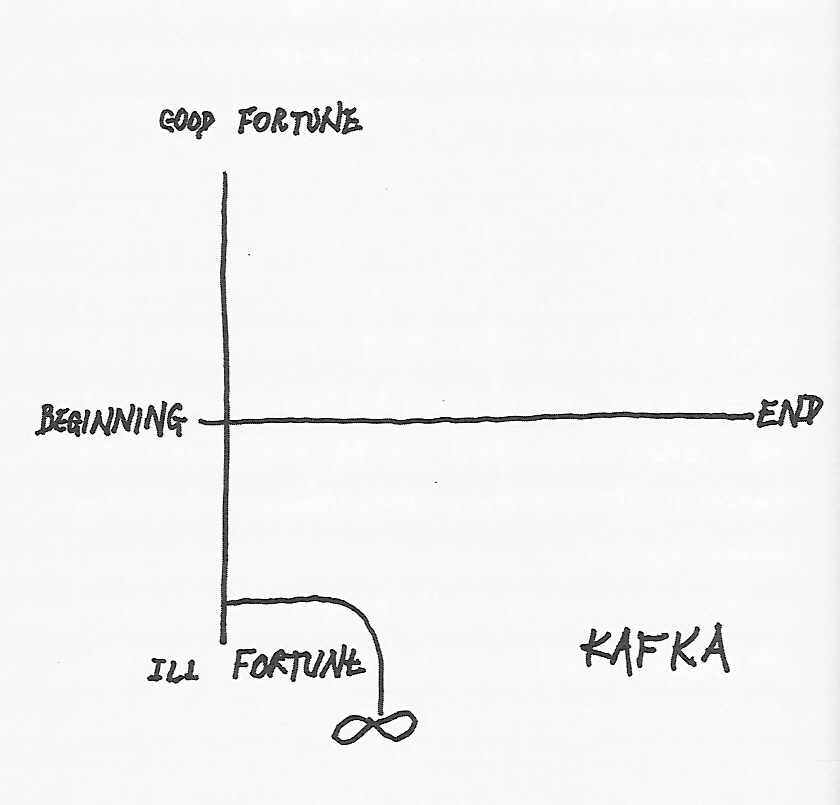 GOOD FORTUNE
BEGINNING
END
ILL FORTUNE
KAFKA
∞